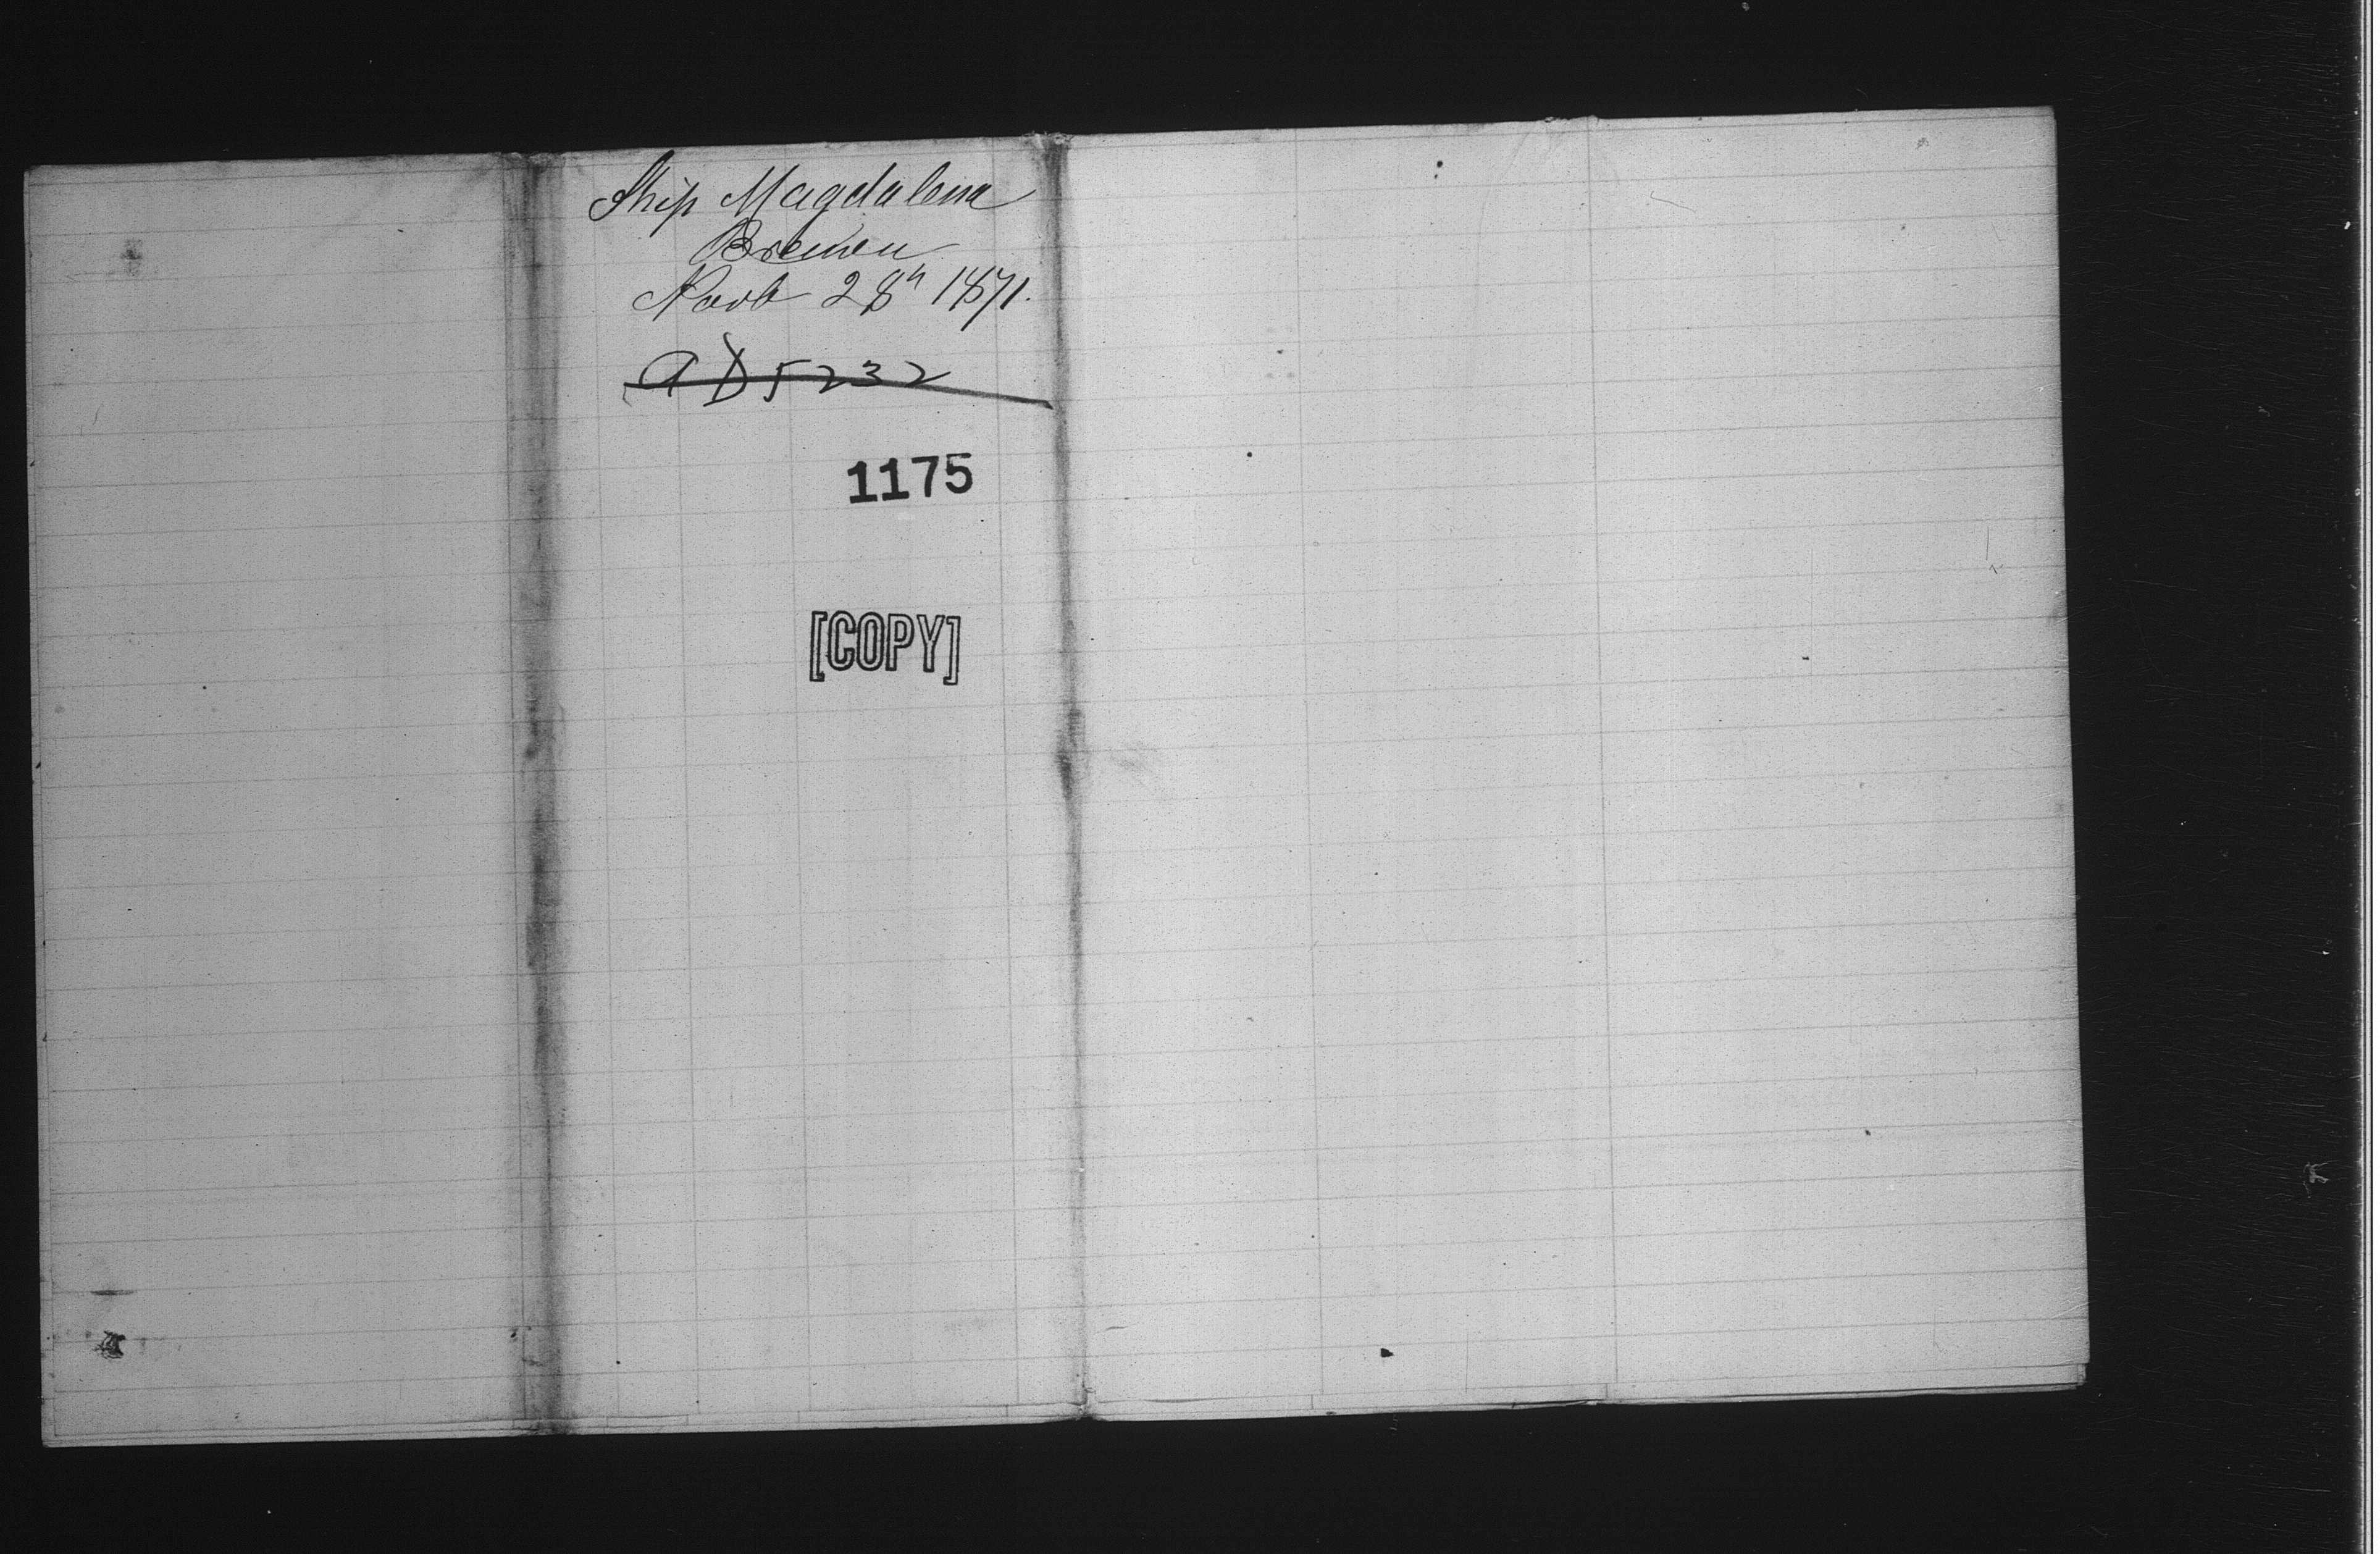 Ship Magdalena
Bremen
Novb 28th 1871.
AD 5232
1175
[COPY]